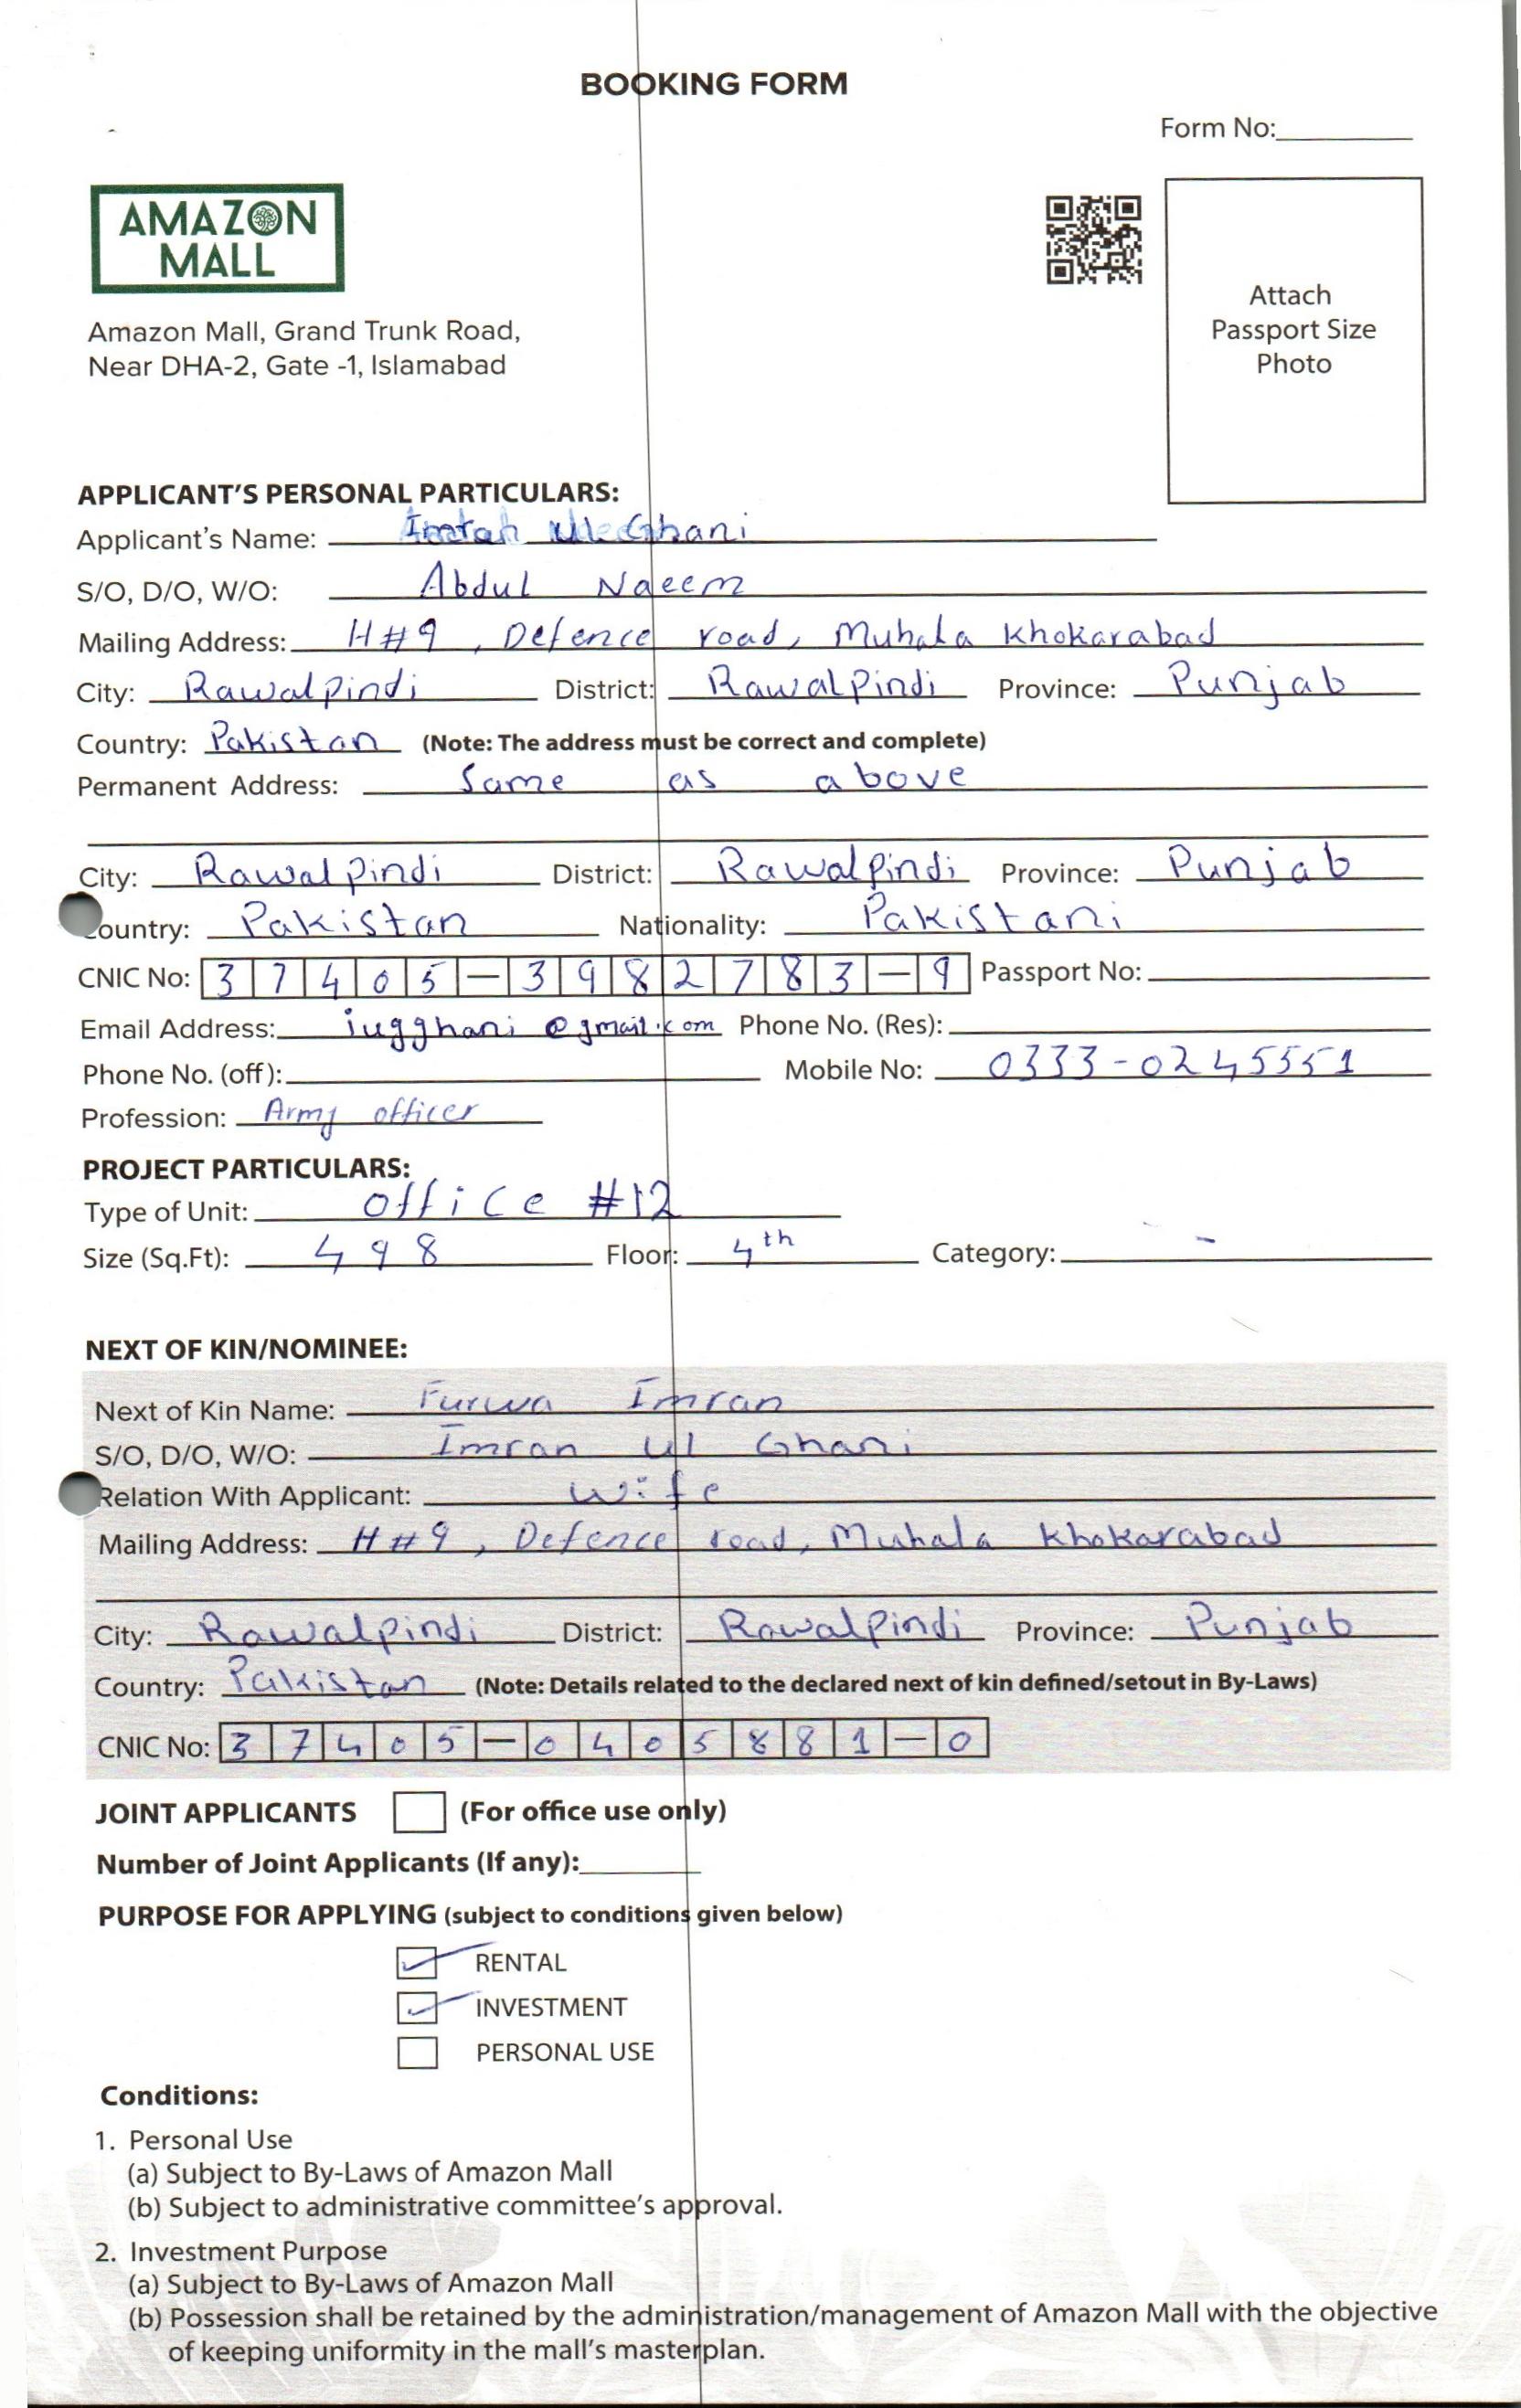 BOOKING FORM
Form No:
AMAZON
MALL
Amazon Mall, Grand Trunk Road,
Near DHA-2, Gate -1, Islamabad
Attach
Passport Size
Photo
APPLICANT'S PERSONAL PARTICULARS:
Applicant's Name: Ghani
S/O, D/O, W/O: Abdul Naeem
Mailing Address: H#9, Defence road, Muhala Khokarabad
City: Rawalpindi District: Rawalpindi Province: Punjab
Country: Pakistan (Note: The address must be correct and complete)
Permanent Address: Same as above
City: Rawalpindi District: Rawalpindi Province: Punjab
Country: Pakistan Nationality: Pakistani
CNIC No: 37405-3982783-9 Passport No:
Email Address: iugghani@gmail.com Phone No. (Res):
Phone No. (off): Mobile No: 0333-0245551
Profession: Army officer
PROJECT PARTICULARS:
Type of Unit: office #12
Size (Sq.Ft): 498 Floor: 4th Category: -
NEXT OF KIN/NOMINEE:
Next of Kin Name: Furwa Imran
S/O, D/O, W/O: Imran ul Ghani
Relation With Applicant: wife
Mailing Address: H#9, Defence road, Muhala Khokarabad
City: Rawalpindi District: Rawalpindi Province: Punjab
Country: Pakistan (Note: Details related to the declared next of kin defined/setout in By-Laws)
CNIC No: 37405-0405881-0
JOINT APPLICANTS (For office use only)
Number of Joint Applicants (If any):
PURPOSE FOR APPLYING (subject to conditions given below)
RENTAL
INVESTMENT
PERSONAL USE
Conditions:
1. Personal Use
(a) Subject to By-Laws of Amazon Mall
(b) Subject to administrative committee's approval.
2. Investment Purpose
(a) Subject to By-Laws of Amazon Mall
(b) Possession shall be retained by the administration/management of Amazon Mall with the objective
of keeping uniformity in the mall's masterplan.